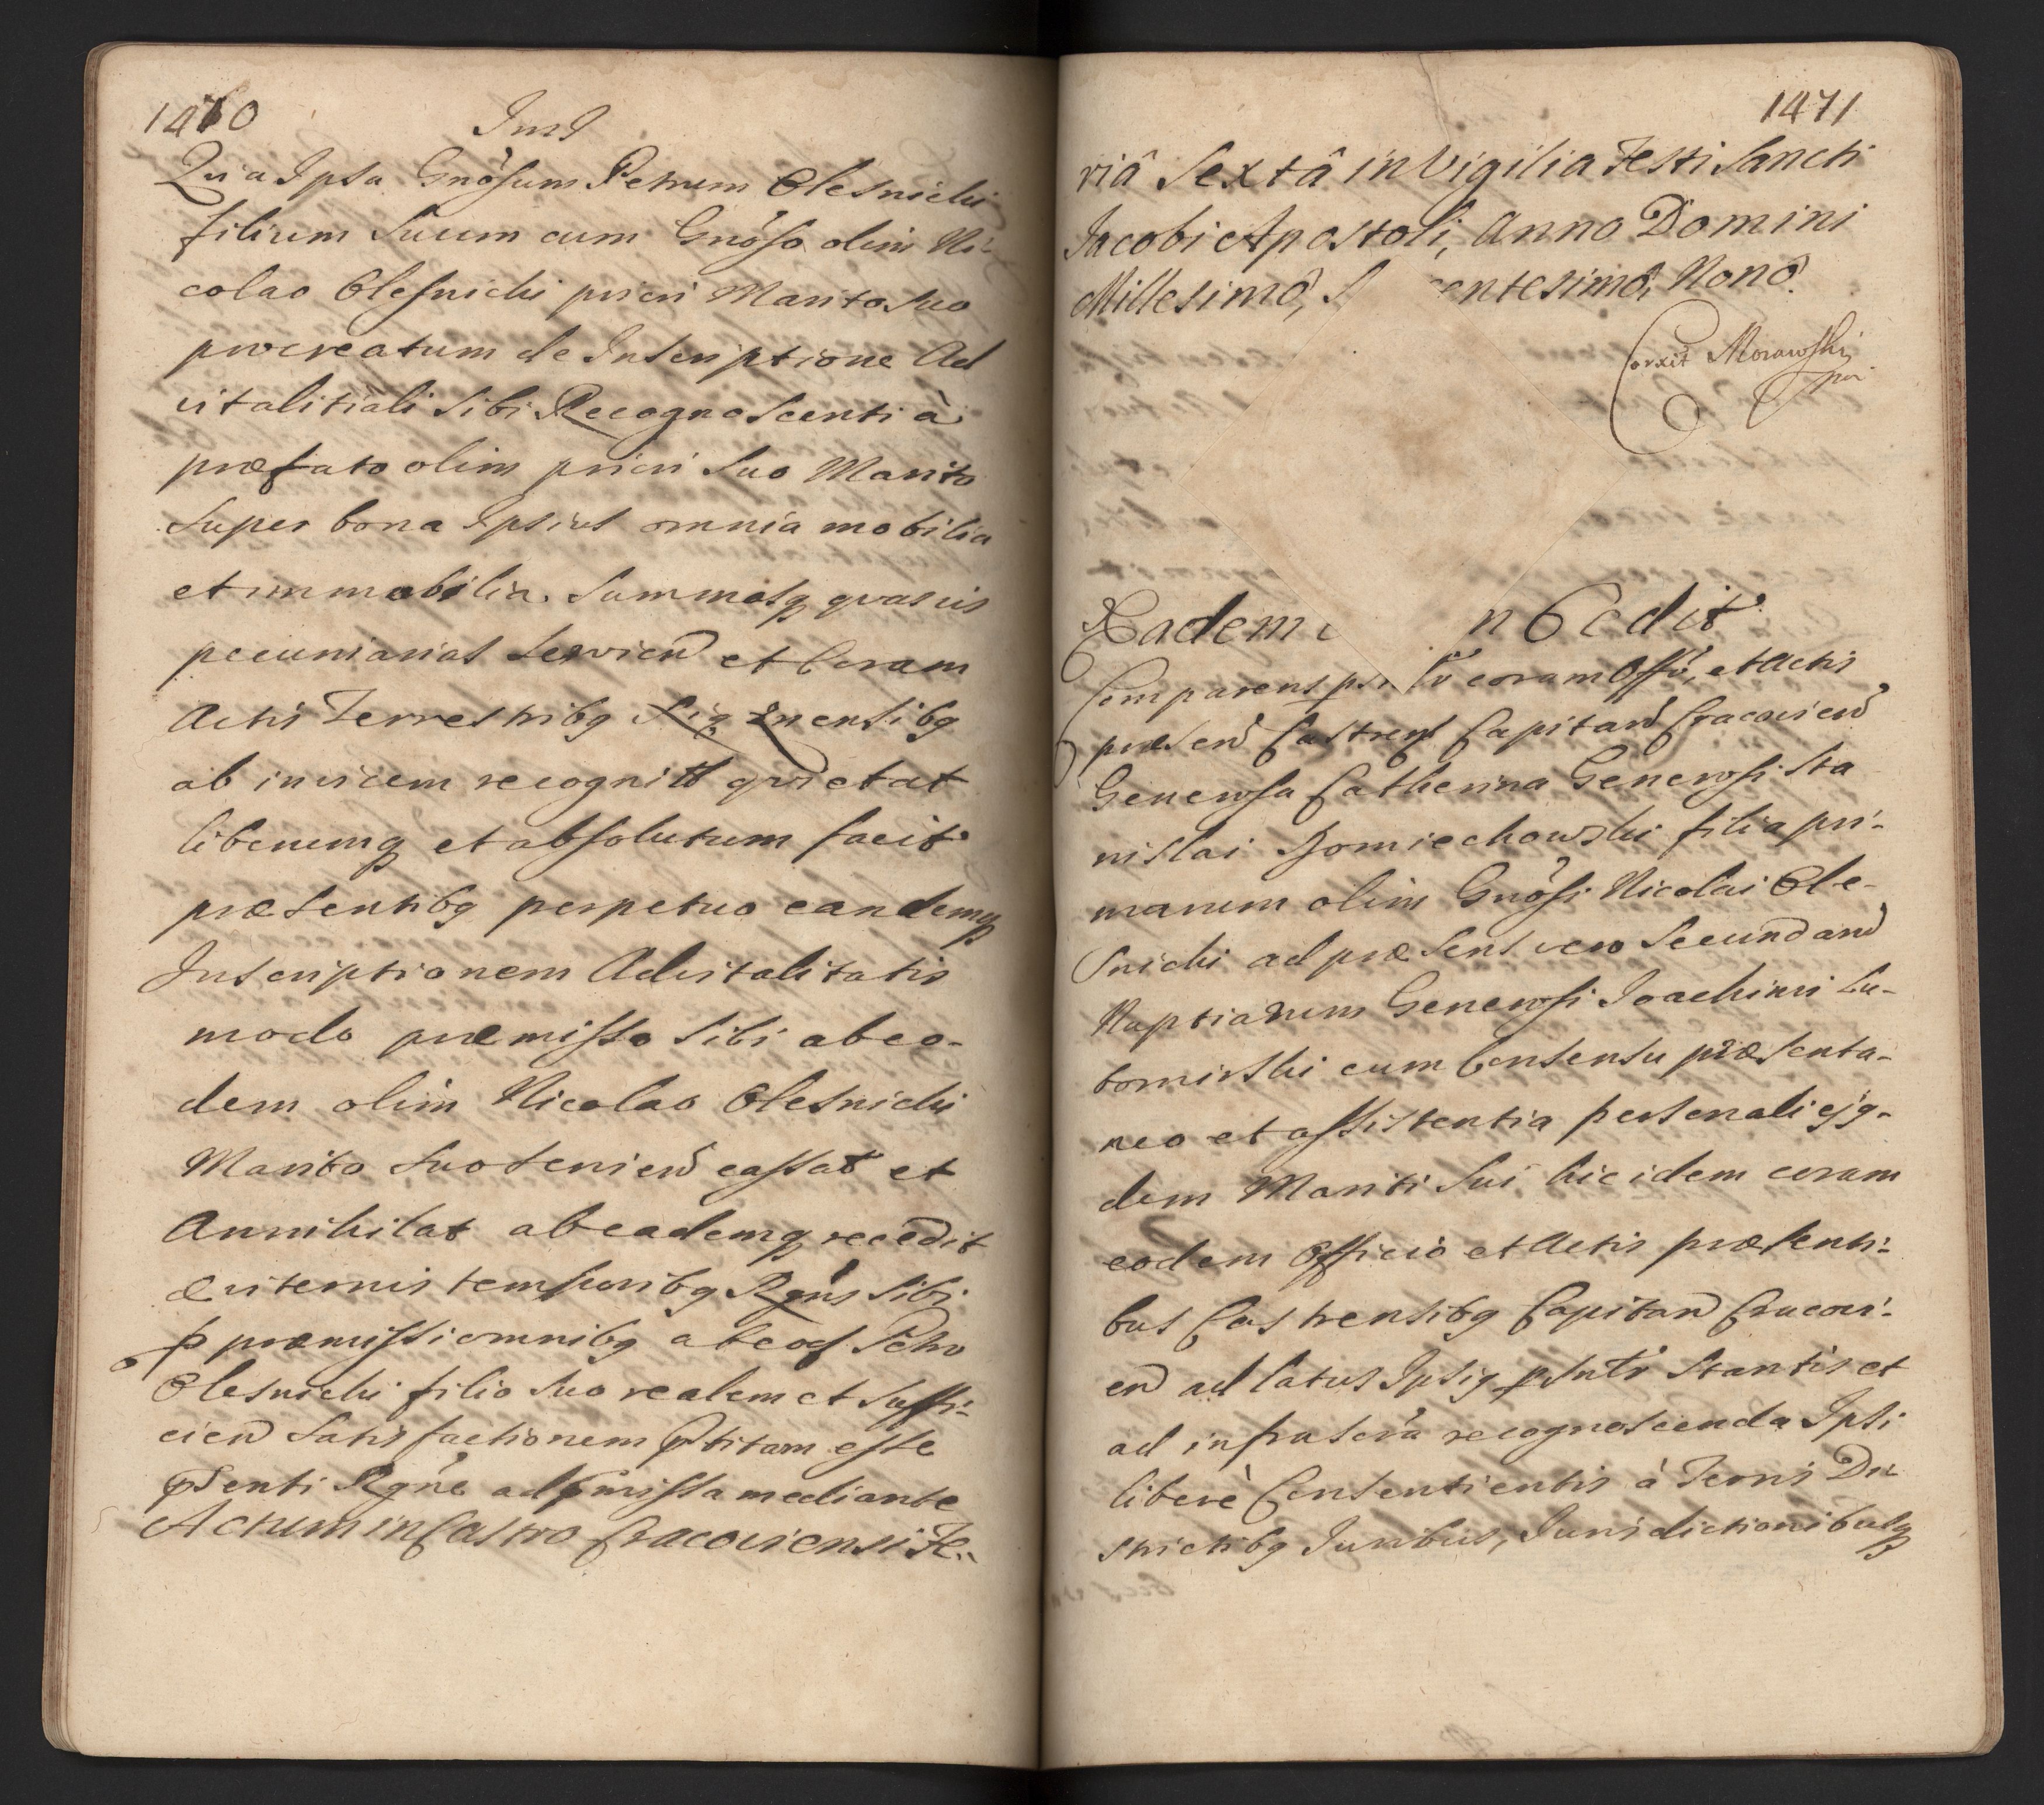 1470
Quia Ipsa Gnosum Petrum Olesnicki
filium Suum cum Gnoso olim Ni-
colao Olesnicki priori Marito Suo
procreatum de Inscriptione Ad
vitalitiali Sibi Recognoscenti à
præfato olim priori Suo Marito
Super bona Ipsius omnia mobilia
et immobilia. Summasq quasvis
pecuniarias Servien et Coram
Actis Terrestribq
ab invicem recognitt qvietat
liberumq et absolutum facit
præsentibq perpetuo eandemq
Inscriptionem Advitalitatis
modo præmisso Sibi ab eo-
dem olim Nicolao Olesnicki
Marito Suo Servien cassat et
Annihilat ab eademq recedit
æviternis temporibq Rgns Sibi
p præmissi omnibq ab eod Petro
Olesnicki filio Suo realem et Suffi-
cien Satisfactionem pstitam esse
psenti Rgne ad pmissa mediante
Actum in Castro Cracoviensi Fe.
1471
riâ Sextâ in Vigilia Festi Sancti
Jacobi Apostoli, Anno Domini
Millesimô, S entesimô, Nonô
Corxit Morawski
Eadem n Cedit
Comparens coram Offo, et Actis
præsen Castren Capitan Cracovien
Generosa Catherina Generosi Sta
nislai Gomiechowski filia pri-
marum olim Gnosi Nicolai Ole-
snicki ad præsens vero Secundan
Nuptiarum Generosi Joachimi Lu-
bomirski cum Consensu præsenta-
neo et assistentia personali ejq-
dem Mariti Sui hic idem coram
eodem Officio et Actis præsenti-
bus Castrensibq Capitan Cracovi-
en ad latus Ipsiq psntr Stantis et
ad infrascra recognoscenda Ipsi
liberè Consentientis à Terris Di
strictibq Juribus, Jurisdictionibusq